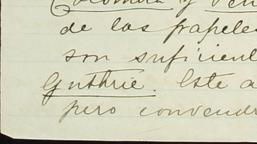 Colombia y Ven
de los papele
son suficient
Guthrie. Este a
pero convendr